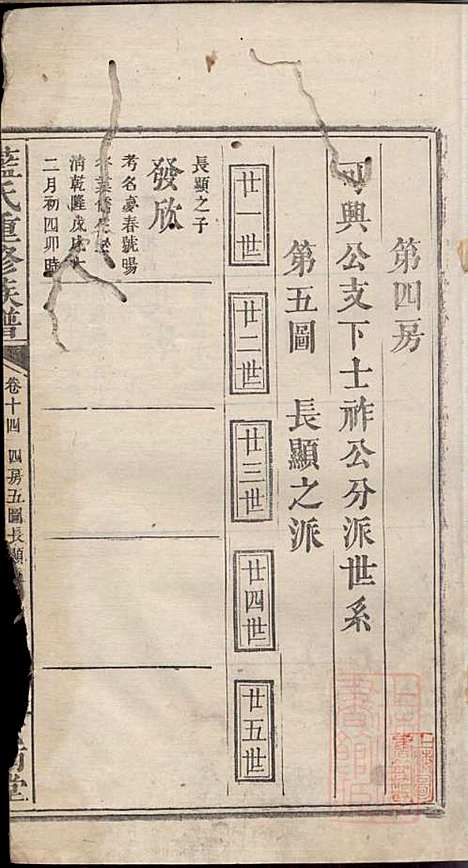 第四房
興公支下士祚公分派世系
第五圖 長顯之派
廿一世
廿二世
廿三世
廿四世
廿五世
長顯之子
發欣
考名慶春號暘
清乾隆戊
二月初四卯時
藍氏重修族譜
卷十四 四房五圖長顯
堂